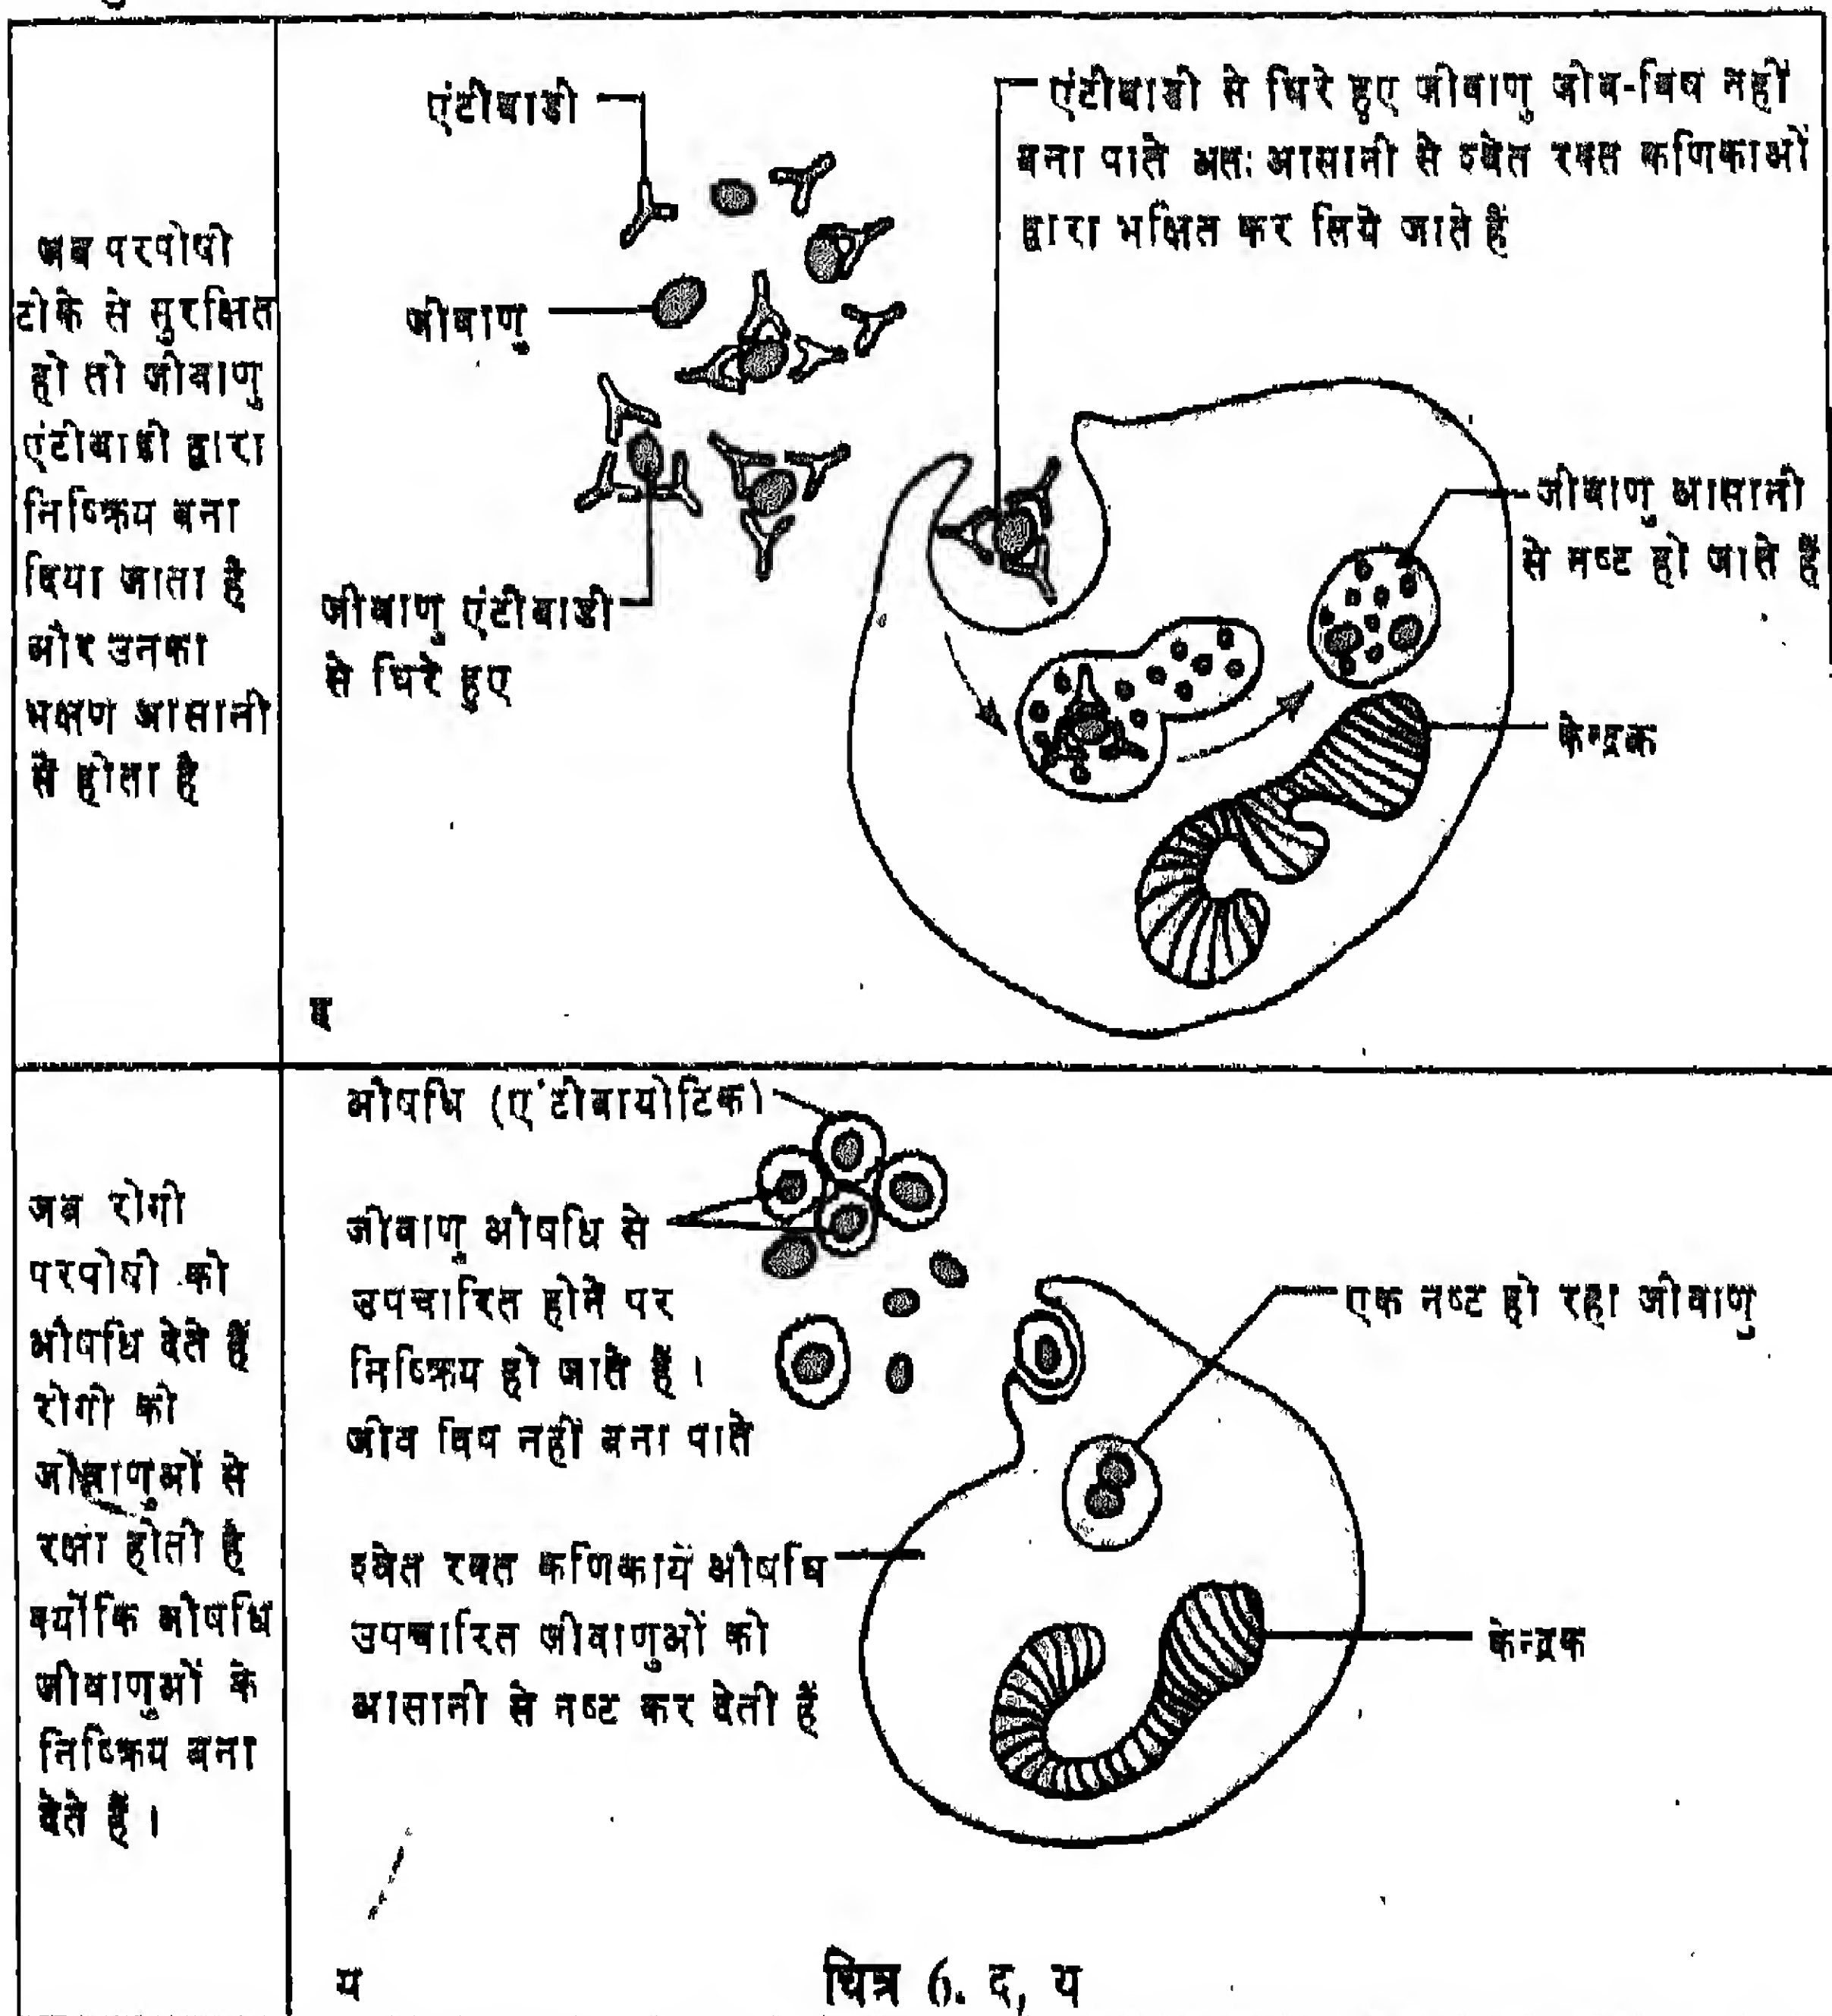 जब परपोषी
टीके से सुरक्षित
हो तो जीवाणु
एंटीबाडी द्वारा
निष्क्रिय बना
दिया जाता है
और उनका
भक्षण आसानी
से होता है
एंटीबाडी
जीवाणु
जीवाणु एंटीबाडी
से घिरे हुए
एंटीबाडी से घिरे हुए जीवाणु जीव-विष नहीं
बना पाते अतः आसानी से श्वेत रक्त कणिकाओं
द्वारा भक्षित कर लिये जाते हैं
जीवाणु आसानी
से नष्ट हो जाते हैं
केन्द्रक
द
जब रोगी
परपोषी को
औषधि देते हैं
रोगी को
जीवाणुओं से
रक्षा होती है
क्योंकि औषधि
जीवाणुओं के
निष्क्रिय बना
देते हैं।
औषधि (एंटीबायोटिक)
जीवाणु औषधि से
उपचारित होने पर
निष्क्रिय हो जाते हैं।
जीव विष नहीं बना पाते
श्वेत रक्त कणिकायें औषधि
उपचारित जीवाणुओं को
आसानी से नष्ट कर देती हैं
एक नष्ट हो रहा जीवाणु
केन्द्रक
य
चित्र 6. द, य